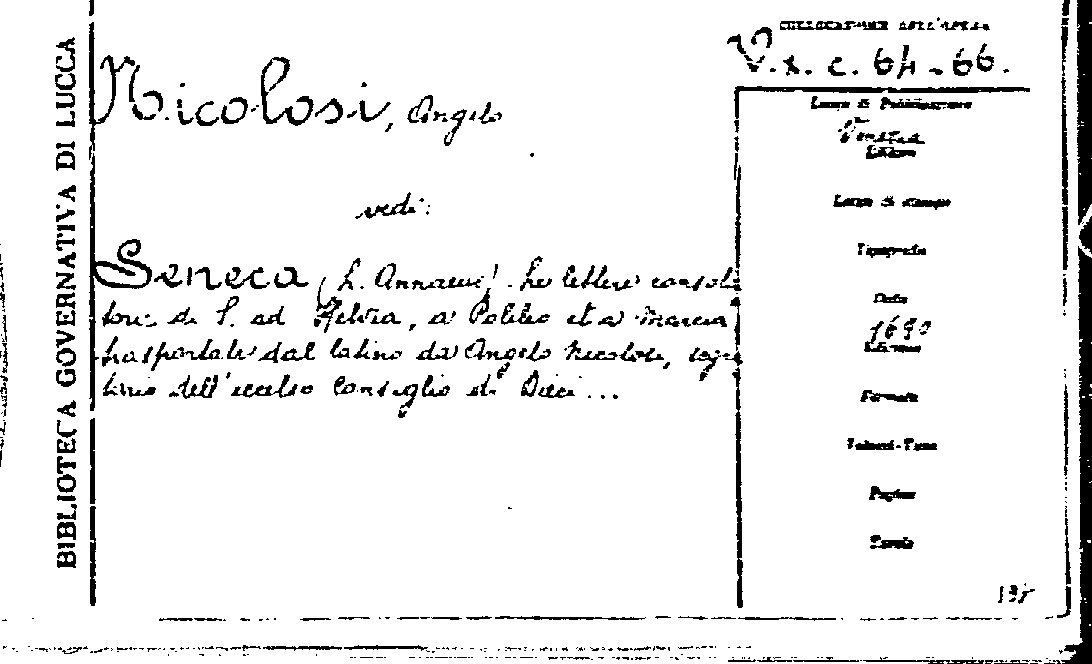 BIBLIOTECA GOVERNATIVA DI LUCCA
COLLOCAZIONE DELL'OPERA
V. x. c. 64-66.
Nicolosi, Angelo
vedi:
Seneca (L. Annaeus). Le lettere consola
torie di S. ad Helvia, a Polibio et a Marcia
trasportate dal latino da Angelo Nicolosi, segre
tario dell'eccelso Consiglio di Dieci...
Luogo di Pubblicazione
Venezia
Editore
Luogo di stampa
Tipografo
Data
1690
Edizione
Formato
Volumi-Tomo
Pagine
Tavole